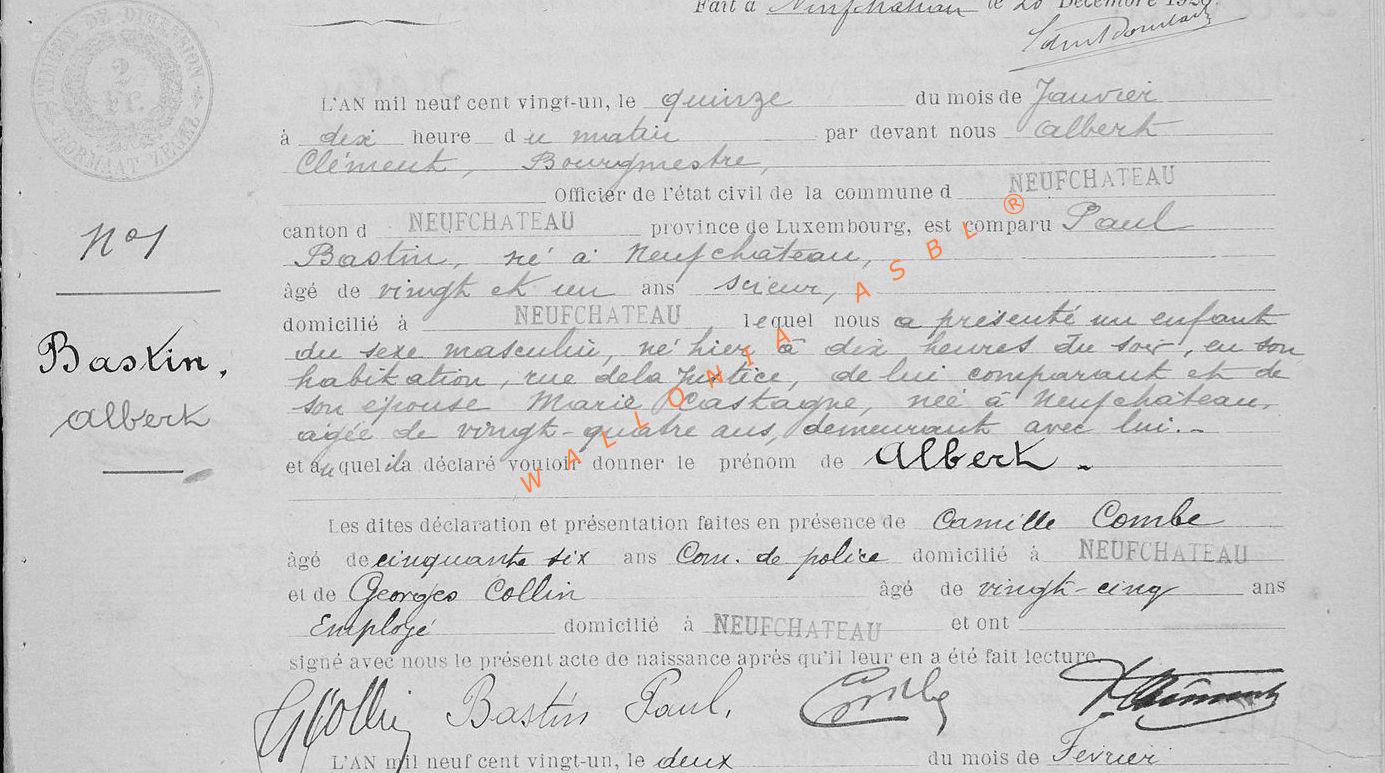 Fait à Neufchâteau le 20 Décembre 1920.
TIMBRE DE DIMENSION
2
FR.
FORMAAT ZEGEL
L'AN mil neuf cent vingt-un, le quinze du mois de Janvier
à dix heure du matin par devant nous Albert
Clément, Bourgmestre,
Officier de l'état civil de la commune d NEUFCHATEAU
N°1
canton d NEUFCHATEAU province de Luxembourg, est comparu Paul
Bastin, né à Neufchâteau,
âgé de vingt et un ans scieur,
domicilié à NEUFCHATEAU lequel nous a présenté un enfant
Bastin,
Albert
du sexe masculin, né hier à dix heures du soir, en son
habitation, rue de la Justice, de lui comparant et de
son épouse Marie Castagne, née à Neufchâteau,
agée de vingt-quatre ans, demeurant avec lui.-
et auquel il a déclaré vouloir donner le prénom de Albert.
WALLONIA ASBL ®
Les dites déclaration et présentation faites en présence de Camille Combe
âgé de cinquante six ans Com. de police domicilié à NEUFCHATEAU
et de Georges Collin âgé de vingt-cinq ans
Employé domicilié à NEUFCHATEAU et ont
signé avec nous le présent acte de naissance après qu'il leur en a été fait lecture
GCollin Bastin Paul. Clément
L'AN mil neuf cent vingt-un, le deux du mois de Fevrier